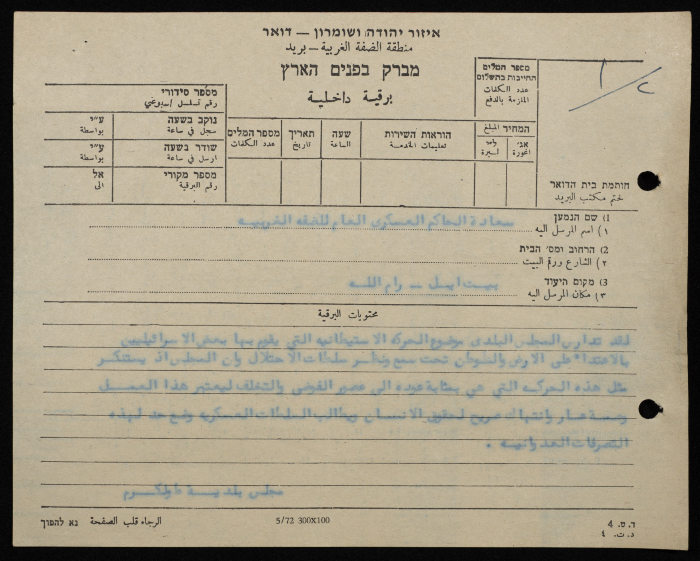 איזור יהודה ושומרון — דואר
منطقة الضفة الغربية – بريد
מברק בפנים הארץ
برقية داخلية
מספר המלים
החייבות בתשלום
عدد الكلمات
الملزمة بالدفع
המחיר المبلغ
אג' ل״י
اغورة ليرة
1/2
מספר סידורי
رقم تسلسل
נוקב בשעה ע״י
سجل في ساعة بواسطة
שודר בשעה ע״י
ارسل في ساعة بواسطة
מספר מקורי אל
رقم البرقية الى
מספר המלים תאריך שעה הוראות השירות
عدد الكلمات تاريخ الساعة تعليمات الخدمة
חותמת בית הדואר
ختم مكتب البريد
1) שם הנמען
١) اسم المرسل اليه سعادة الحاكم العسكري العام للضفه الغربيه
2) הרחוב ומס' הבית
٢) الشارع ورقم البيت
3) מקום היעוד
٣) مكان المرسل اليه بيت ايل – رام الله
محتويات البرقية
لقد تدارس المجلس البلدي موضوع الحركه الاستيطانيه التي يقوم بها بعض الاسرائيليين
بالاعتداء على الارض والسكان تحت سمع ونظر سلطات الاحتلال وان المجلس اذ يستنكر
مثل هذه الحركه التي هي بمثابة عوده الى عصور الفوضى والتخلف ليعتبر هذا العمل
وصمة عار وانتهاك صريح لحقوق الانسان ويطالب السلطات العسكريه وضع حد لهذه
التصرفات العدوانيه .
مجلس بلدية طولكرم
ד.ט. 4
د.ت. ٤
5/72 300X100
الرجاء قلب الصفحة נא להפוך